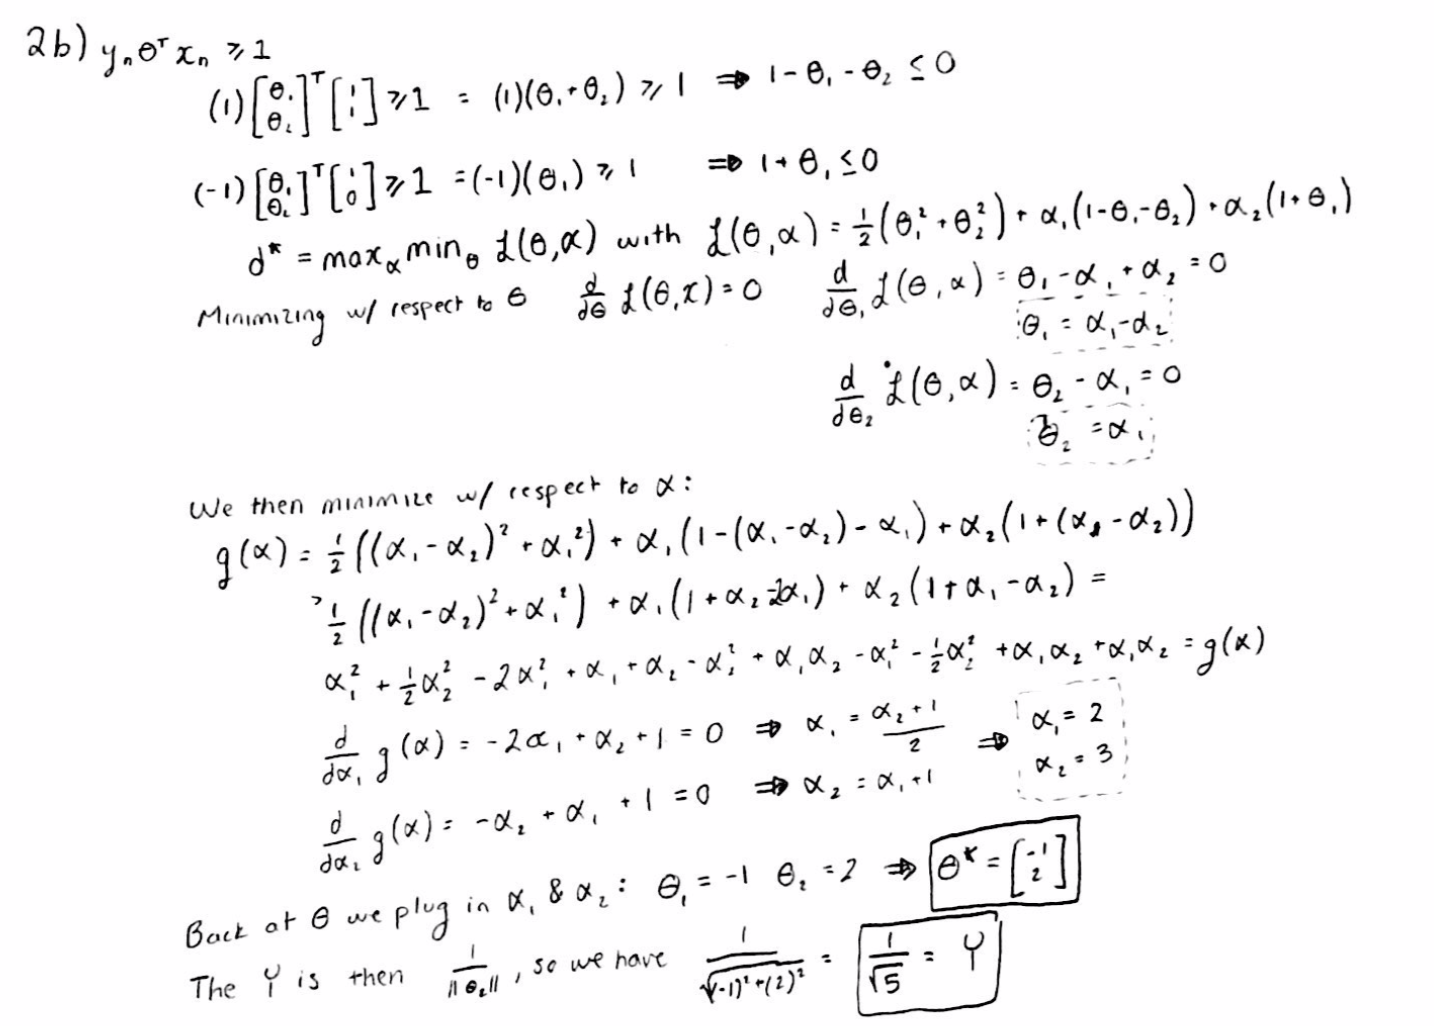 2b) yₙθᵀxₙ ≥ 1
(1)[θ₁ θ₂]ᵀ[1 1] ≥ 1 = (1)(θ₁+θ₂) ≥ 1 ⇒ 1-θ₁-θ₂ ≤ 0
(-1)[θ₁ θ₂]ᵀ[1 0] ≥ 1 = (-1)(θ₁) ≥ 1 ⇒ 1+θ₁ ≤ 0
d* = max_α min_θ ℒ(θ,α) with ℒ(θ,α) = ½(θ₁²+θ₂²) + α₁(1-θ₁-θ₂) + α₂(1+θ₁)
Minimizing w/ respect to θ d/dθ ℒ(θ,x)=0 d/dθ₁ ℒ(θ,α) = θ₁-α₁+α₂ = 0
θ₁ = α₁-α₂
d/dθ₂ ℒ(θ,α) = θ₂-α₁ = 0
θ₂ = α₁
We then minimize w/ respect to α:
g(α) = ½((α₁-α₂)²+α₁²) + α₁(1-(α₁-α₂)-α₁) + α₂(1+(α₁-α₂))
= ½((α₁-α₂)²+α₁²) + α₁(1+α₂-2α₁) + α₂(1+α₁-α₂) =
α₁² + ½α₂² - 2α₁² + α₁ + α₂ - α₂² + α₁α₂ - α₁² - ½α₂² + α₁α₂ + α₁α₂ = g(α)
d/dα₁ g(α) = -2α₁ + α₂ + 1 = 0 ⇒ α₁ = (α₂+1)/2 ⇒ α₁ = 2
d/dα₂ g(α) = -α₂ + α₁ + 1 = 0 ⇒ α₂ = α₁+1 α₂ = 3
Back at θ we plug in α₁ & α₂: θ₁ = -1 θ₂ = 2 ⇒ θ* = [-1 2]
The γ is then 1/||θ₂||, so we have 1/√(-1)²+(2)² = 1/√5 = γ